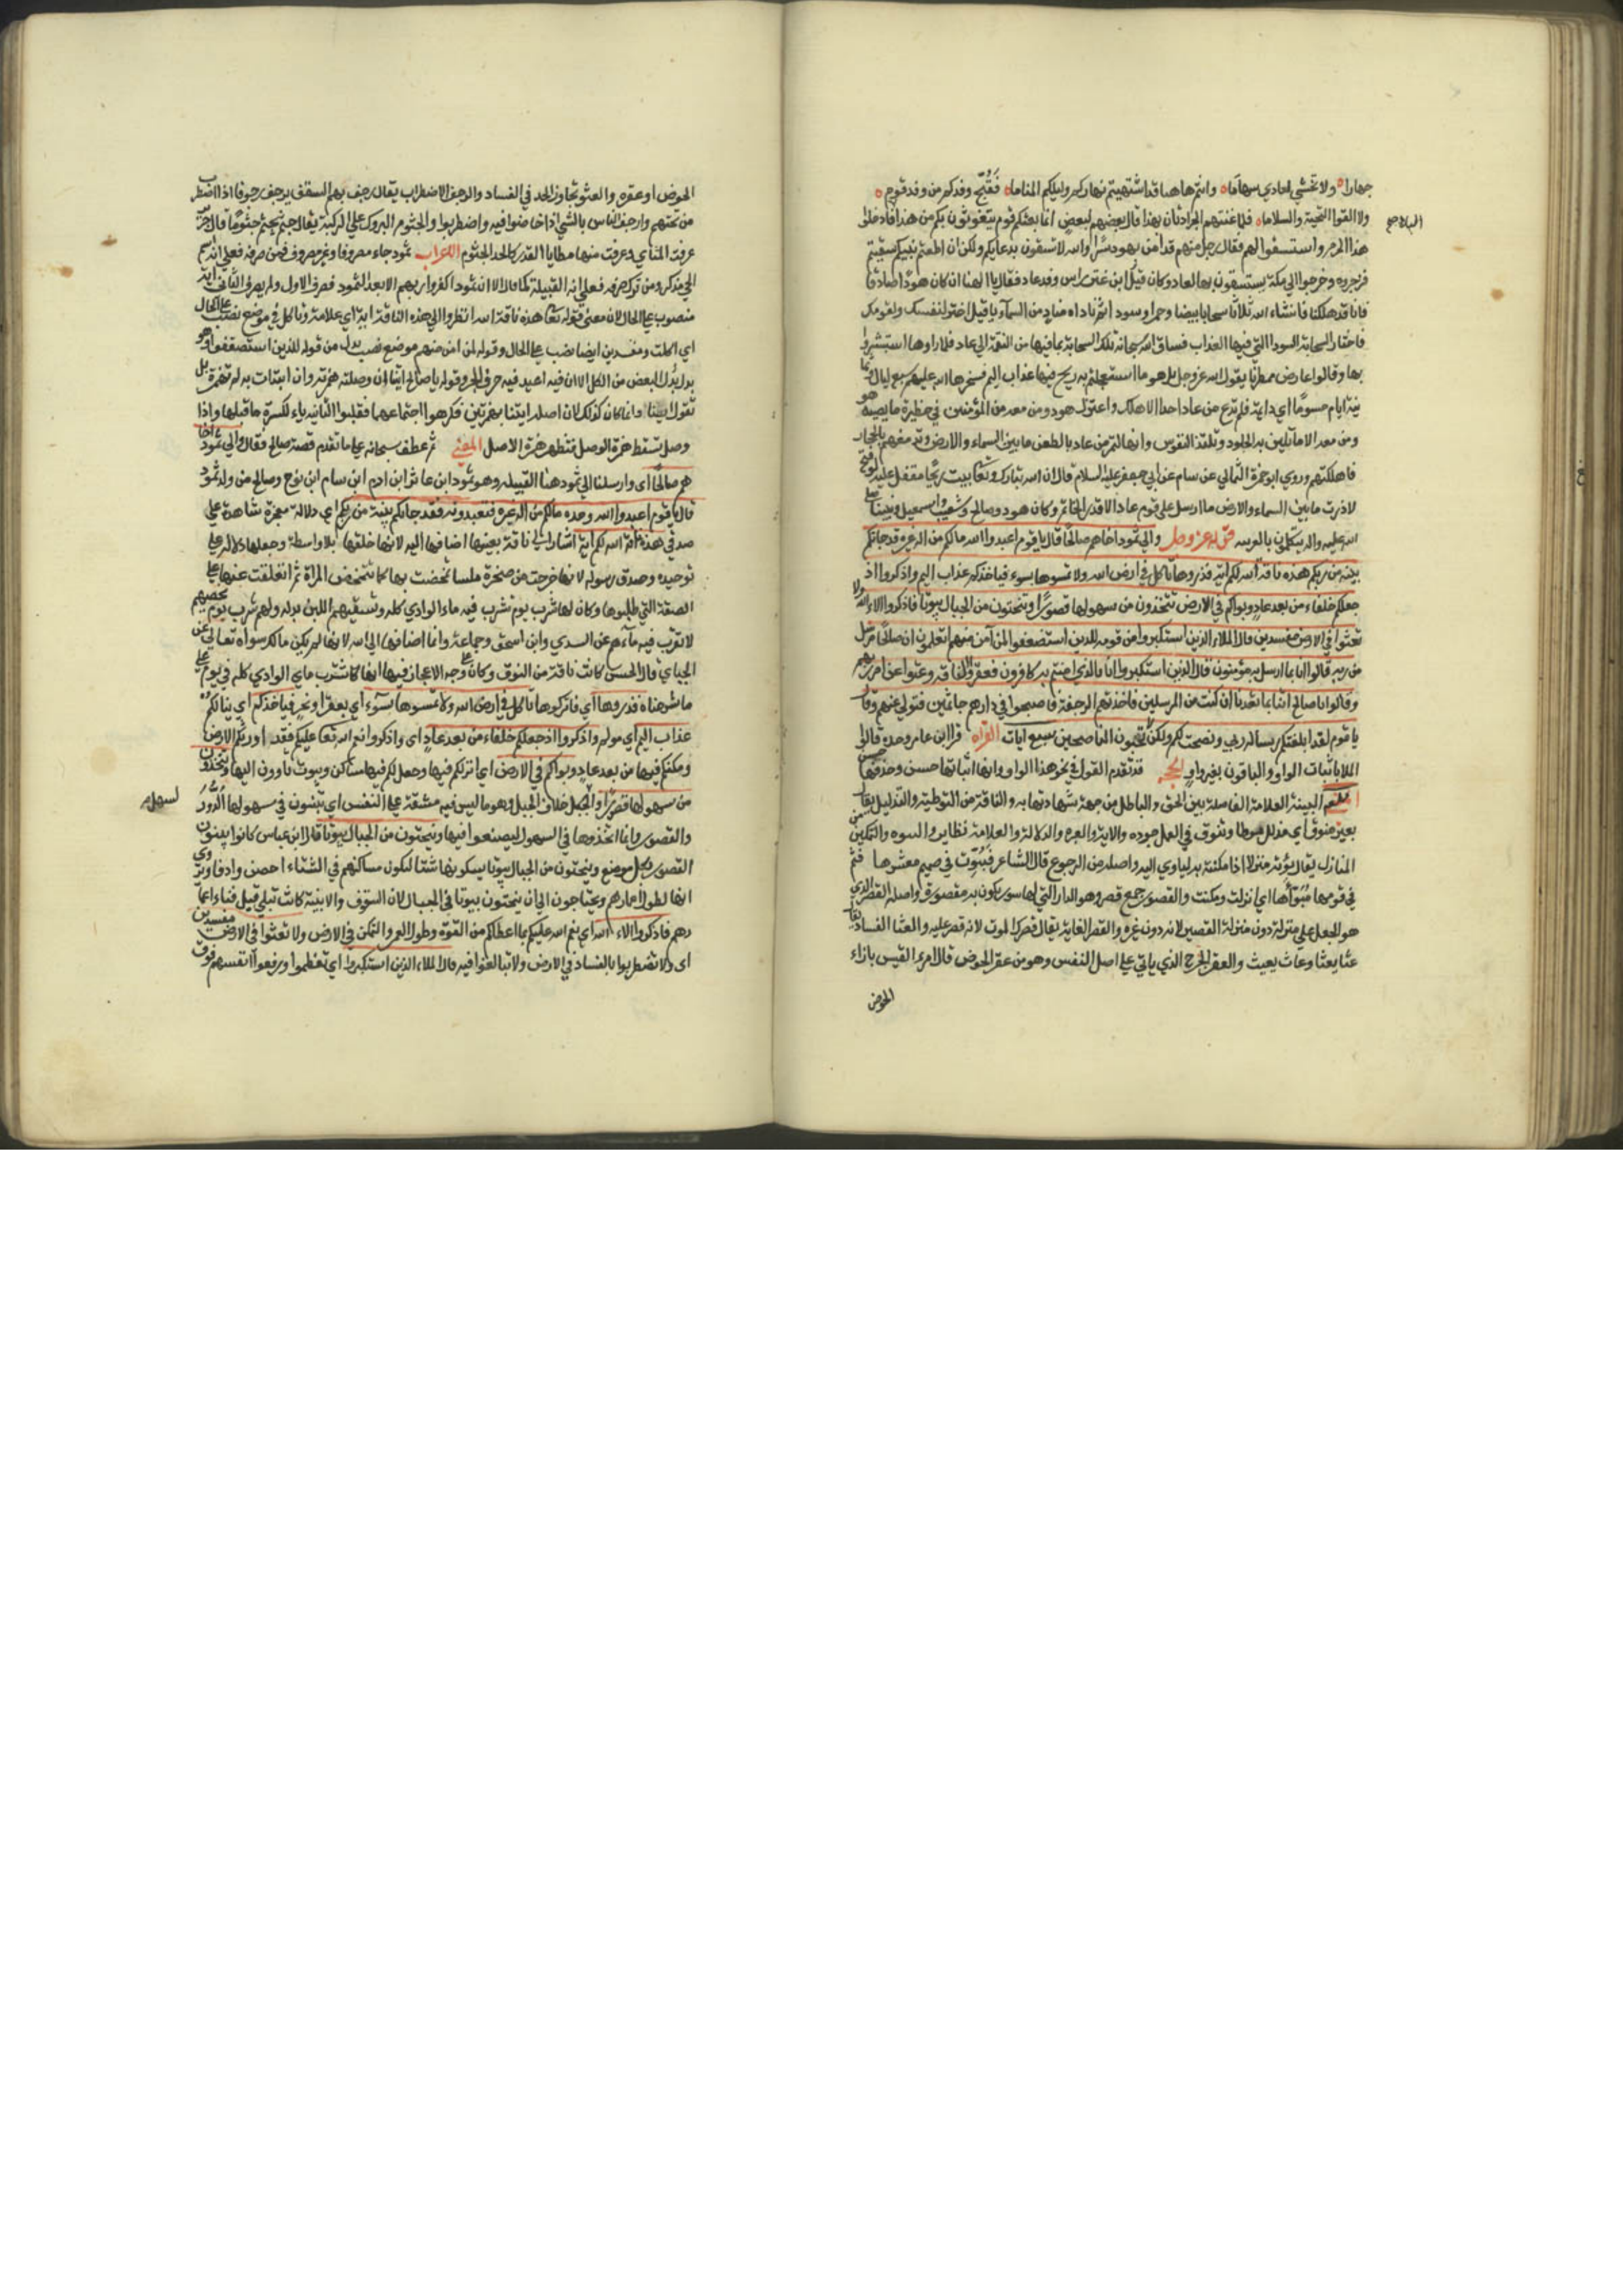 جهارا ولا تخشى لعادي سهاما وانتم هاهنا فيما اشتهيتم نهاركم وليلكم التماما فقبح وفدكم من وفد قوم
ولا لقوا التحية والسلاما فلما غنتهم الجرادتان بهذا قال بعضهم لبعض انما بعثكم قوم يتغوثون بكم من هذا فادخلوا
هذا الحرم واستسقوا لهم فقال رجل منهم قد امن بهود سرا والله لا تسقون بدعايكم ولكن ان اطعتم نبيكم سقيتم
فزجروه وخرجوا الى مكة يستسقون بها لعاد وكان قيل ابن عنز راس وفد عاد فقال يا الهنا ان كان هودا صادقا
فاسقنا فانا قد هلكنا فانشاء الله ثلاثا سحابا بيضا وحمرا وسودا ثم ناداه مناد من السماء يا قيل اختر لنفسك ولقومك
فاختار السحابة السودا التي فيها العذاب فساق الله سبحانه تلك السحابة بما فيها من النقمة الى عاد فلما راوها استبشروا
بها وقالوا عارض ممطرنا يقول الله عز وجل بل هو ما استعجلتم به ريح فيها عذاب اليم فسخرها الله عليهم سبع ليال
وثمانية ايام حسوما اي دايمة فلم تدع من عاد احدا الا هلك واعتزل هود ومن معه من المؤمنين في حظيرة ما يصيبه
ومن معه الا ما تلين به الجلود وتلتذ النفوس وانها لتمر من عاد بالطعن ما بين السماء والارض وتدمغهم بالحجارة
فاهلكتهم وروى ابو حمزة الثمالي عن سالم عن ابي جعفر عليه السلام قال ان لله تبارك وتعالى بيت ريح مقفل عليه لو فتح
لاذرت ما بين السماء والارض ما ارسل على قوم عاد الا قدر الخاتم وكان هود وصالح وشعيب واسمعيل ونبينا صلى
الله عليه واله يتكلمون بالعربيه قوله عز وجل والى ثمود اخاهم صالحا قال يا قوم اعبدوا الله ما لكم من اله غيره قد جاءتكم
بينة من ربكم هذه ناقة الله لكم اية فذروها تاكل في ارض الله ولا تمسوها بسوء فياخذكم عذاب اليم واذكروا اذ
جعلكم خلفاء من بعد عاد وبواكم في الارض تتخذون من سهولها قصورا وتنحتون من الجبال بيوتا فاذكروا الاء الله ولا
تعثوا في الارض مفسدين قال الملاء الذين استكبروا من قومه للذين استضعفوا لمن آمن منهم اتعلمون ان صالحا مرسل
من ربه قالوا انا بما ارسل به مؤمنون قال الذين استكبروا انا بالذي امنتم به كافرون فعقروا الناقة وعتوا عن امر ربهم
وقالوا يا صالح ائتنا بما تعدنا ان كنت من المرسلين فاخذتهم الرجفة فاصبحوا في دارهم جاثمين فتولى عنهم وقال
يا قوم لقد ابلغتكم رسالة ربي ونصحت لكم ولكن لا تحبون الناصحين سبع ايات القراءة قرا ابن عامر وحده قال
الملا باثبات الواو والباقون بغير واو الحجة قد تقدم القول في نحو هذا الواو وانها اثباتها حسن وحذفها حسن
اللغة البينة العلامة الفاصلة بين الحق والباطل من جهة شهادتها به والناقة من التوطئة والتذليل يقال
بعير منوق اي مذلل موطا وتنوق في العمل جوده والاية والعبرة والدلالة والعلامة نظاير والتبوء والتمكين من
المنازل يقال بوئه منزلا اذا مكنته به لياوي اليه واصله من الرجوع قال الشاعر فبوئت في صميم معشرها فتم
في قومها مبوّأها اي نزلت ومكنت والقصور جمع قصر وهو الدار التي لها سور يكون به مقصورة واصله القصر الذي
هو الجعل على منزلة دون منزلة القصير لانه دون غيره والقصر الغاية يقال قصرك الموت لانه قصر عليه والعثا الفساد يقال
عثا يعثا وعاث يعيث والعقر الجرح الذي ياتي على اصل النفس وهو من عقر الحوض قال امرء القيس بازاء
الحوض
الحوض او عقره والعتو تجاوز الحد في الفساد والرجف الاضطراب يقال رجف بهم السقف يرجف رجوفا اذا اضطرب
من تحتهم وارجف الناس بالشي اذا خاضوا فيه واضطربوا والجثوم البروك على الركبة يقال جثم يجثم جثوما قال جرير
عرفت المنتاي وعرفت منها مطايا القدر كالحدا الجثوم الاعراب ثمود جاء مصروفا وغير مصروف فمن صرفه فعلى انه اسم
الحي مذكر ومن ترك صرفه فعلى انه القبيلة كما قال الا ان ثمودا كفروا ربهم الا بعدا لثمود فصرف الاول ولم يصرف الثاني اية
منصوب على الحال لان معنى قوله تعالى هذه ناقة الله انظروا الى هذه الناقة اية اي علامة وتاكل في موضع نصب على الحال
اي اكلت ومفسدين ايضا نصب على الحال وقوله لمن امن منهم موضع نصب بدل من قوله للذين استضعفوا وهو
بدل البعض من الكل الا ان فيه اعيد فيه حرف الجر وقوله يا صالح ائتنا ان وصلته همزته وان ابتدات به لم تهمزه بل
تقول ايتنا وانما كان كذلك لان اصله ائتنا بهمزتين فكرهوا اجتماعهما فقلبوا الثانية ياء لكسرة ما قبلها واذا
وصل تسقط همزة الوصل فتظهر همزة الاصل المعنى ثم عطف سبحانه على ما تقدم قصة صالح فقال والى ثمود اخا
هم صالحا اي وارسلنا الى ثمود هنا القبيلة وهو ثمود ابن عاثر ابن ارم ابن سام ابن نوح وصالح من ولد ثمود
قال يا قوم اعبدوا الله وحده ما لكم من اله غيره فتعبدونه قد جاءتكم بينة من ربكم اي دلالة معجزة شاهدة على
صدقي هذه ناقة الله لكم اية اشار الى ناقة بعينها اضافها اليه لانها خلقها بلا واسطة وجعلها دلالة على
توحيده وصدق رسوله لانها خرجت من صخرة ملسا تمخضت بها كما تتمخض المراة ثم انفلقت عنها على
الصفة التي طلبوها وكان لها شرب يوم تشرب فيه ماء الوادي كله وتسقيهم اللبن بدله ولهم شرب يوم يخصهم
لا تقرب فيه ماءهم عن السدي وابن اسحق وجماعة وانما اضافها الى الله لانها لم يكن مالك سواه تعالى عن
الجبائي قال الحسن كانت ناقة من النوق وكان وجه الاعجاز فيها انها كانت تشرب ماء الوادي كله في يوم على
ما شرحناه فذروها اي فاتركوها تاكل في ارض الله ولا تمسوها بسوء اي بعقر او نحر فياخذكم اي ينالكم
عذاب اليم اي مولم واذكروا اذ جعلكم خلفاء من بعد عاد اي واذكروا نعم الله تعالى عليكم فقد اورثكم الارض
ومكنكم فيها من بعد عاد وبواكم في الارض اي انزلكم فيها وجعل لكم فيها مساكن وبيوت تاوون اليها تتخذون
من سهولها قصورا والسهل خلاف الجبل وهو ما ليس فيه مشقة على النفس اي تبنون في سهولها الدور
والقصور وانما اتخذوها في السهول ليصيفوا فيها وتنحتون من الجبال بيوتا قال ابن عباس كانوا يبنون
القصور بكل موضع وينحتون من الجبال بيوتا يسكونها شتا لتكون مساكنهم في الشتاء احصن وادفا ويروى
انها لطول اعمارهم وعيشهم يحتاجون الى ان ينحتون بيوتا في الجبال لان السقوف والابنية كانت تبلى قبل فناء اعما
رهم فاذكروا الاء الله اي نعم الله عليكم بما اعطاكم من القوة وطول العمر والتمكن في الارض ولا تعثوا في الارض مفسدين
اي ولا تضطربوا بالفساد في الارض ولا تبالغوا فيه قال الملاء الذين استكبروا اي تعظموا ورفعوا انفسهم فوق